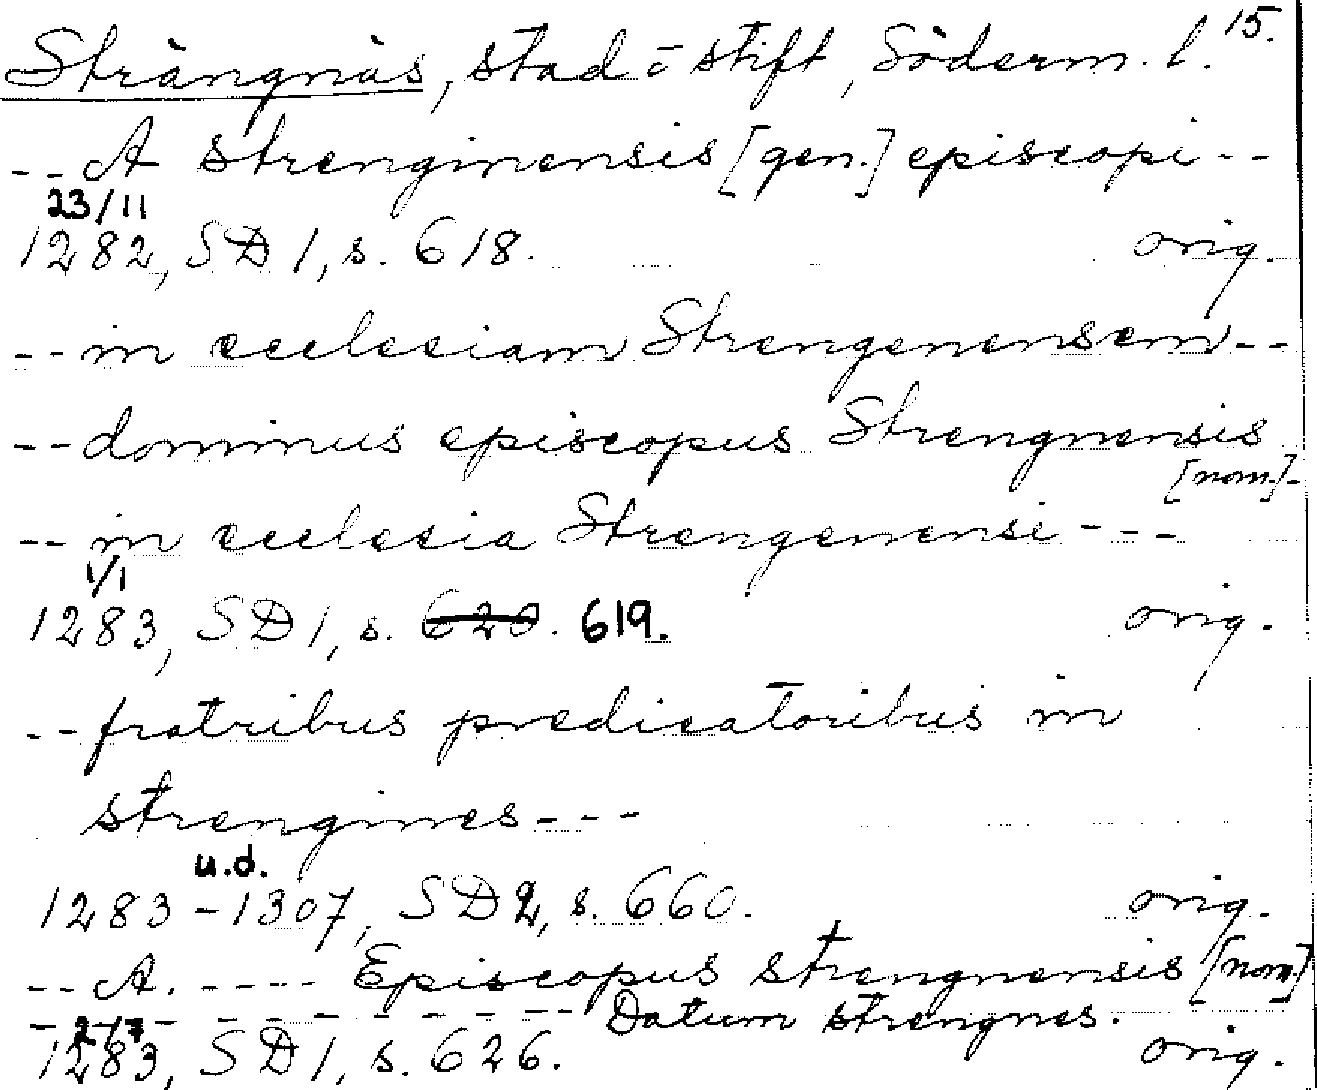 15.
Strängnäs, stad o stift, Söderm. l.
-- A strenginensis [gen.] episcopi --
23/11
1282, SD 1, s. 618. orig.
-- in ecclesiam Strengenensem --
-- dominus episcopus Strengnensis
[nom.] -
-- in ecclesia Strengenensi ---
1/1
1283, SD 1, s. 620. 619. orig.
-- fratribus predicatoribus in
strengines ---
u.d.
1283 - 1307, SD 2, s. 660. orig.
-- A. ---- Episcopus strengnensis [nom]
---------- Datum strengnes.
2/7
1283, SD 1, s. 626. orig.